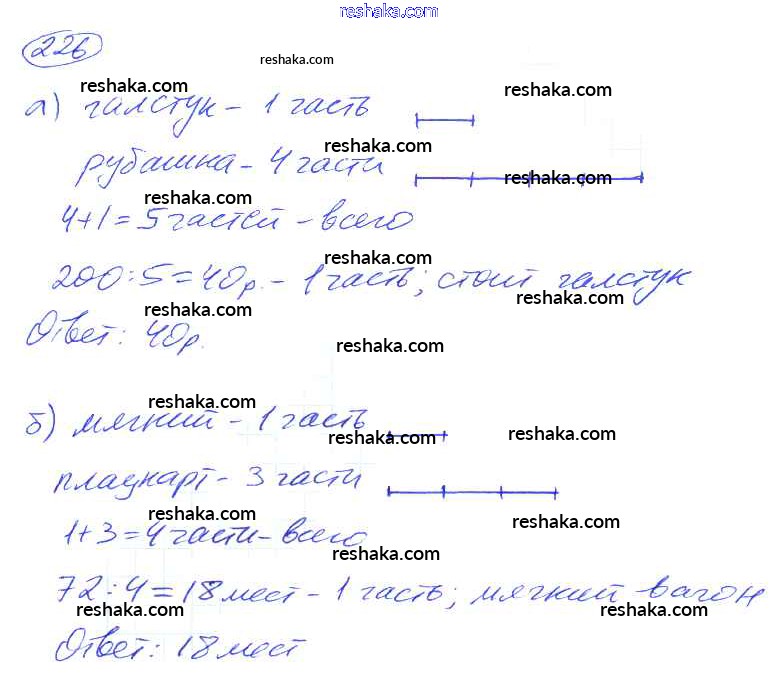 reshaka.com
226
reshaka.com
reshaka.com
reshaka.com
а) галстук - 1 часть
reshaka.com
рубашка - 4 части
reshaka.com
reshaka.com
4+1=5 частей - всего
reshaka.com
200:5=40р. - 1 часть; стоит галстук
reshaka.com
reshaka.com
Ответ: 40р.
reshaka.com
reshaka.com
б) мягкий - 1 часть
reshaka.com
reshaka.com
плацкарт - 3 части
reshaka.com
reshaka.com
1+3=4 части - всего
reshaka.com
72:4=18 мест - 1 часть; мягкий вагон
reshaka.com
reshaka.com
Ответ: 18 мест